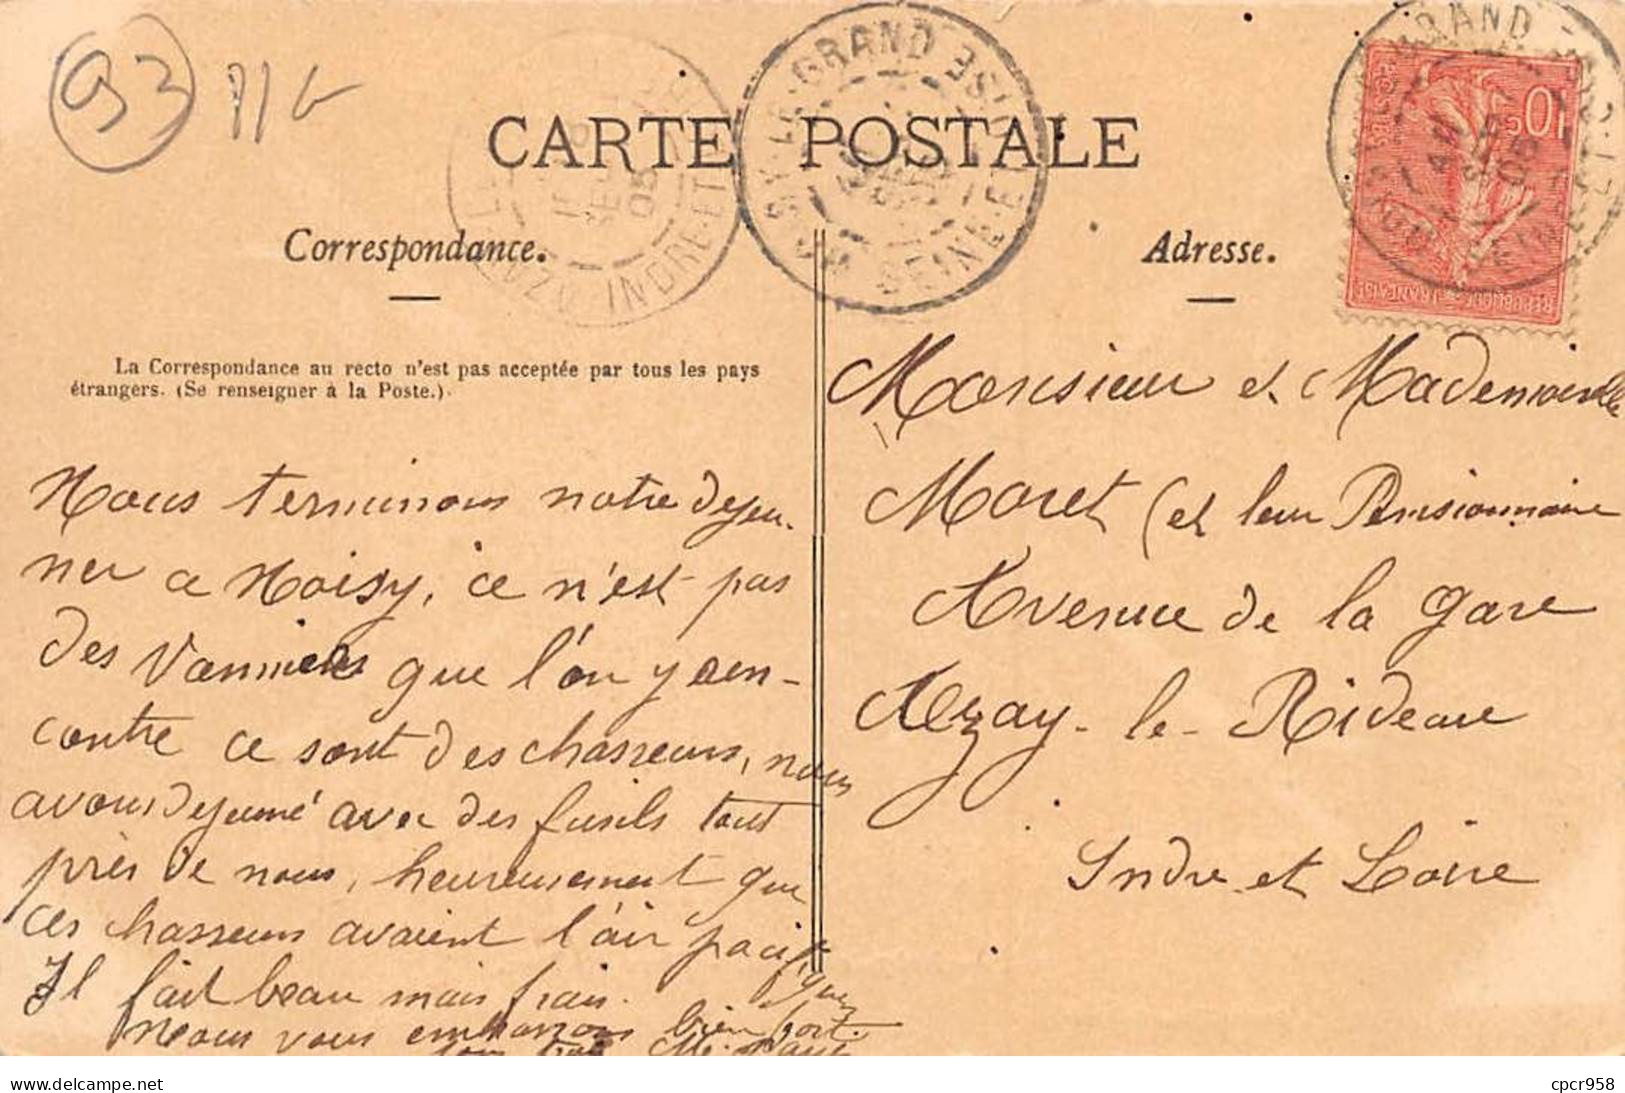 93 116
CARTE POSTALE
Correspondance.
Adresse.
La Correspondance au recto n'est pas acceptée par tous les pays
étrangers. (Se renseigner à la Poste.)
NOISY-LE-GRAND SEINE-ET-OISE
INDRE-ET-
10c
REPUBLIQUE FRANÇAISE
POSTES
Nous terminons notre dejeu-
ner a Noisy, ce n'est pas
des Vanniers que l'on y ren-
contre ce sont des chasseurs, nous
avons dejeuné avec des fusils tout
près de nous, heureusement que
ces chasseurs avaient l'air pacifique
Il fait beau mais frais.
Nous vous embrassons bien fort.
Monsieur et Mademoiselle
Moret (et leur Pensionnaire
Avenue de la gare
Azay-le-Rideau
Indre et Loire
delcampe.net
cpcr958